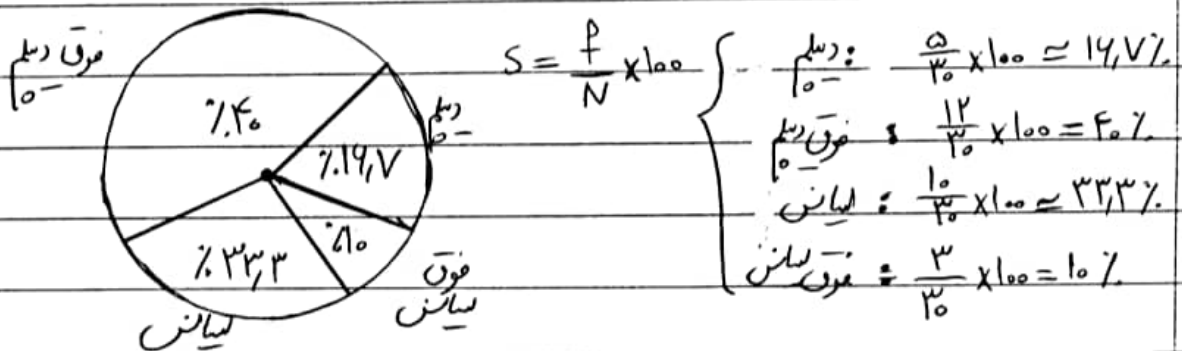 فوق دیپلم
٪۴۰
دیپلم
٪۱۶٫۷
٪۱۰
فوق
لیسانس
٪۳۳٫۳
لیسانس
S = f/N ×۱۰۰
دیپلم : ۵/۳۰ ×۱۰۰ ≃ ۱۶٫۷٪
فوق دیپلم : ۱۲/۳۰ ×۱۰۰ = ۴۰٪
لیسانس : ۱۰/۳۰ ×۱۰۰ ≃ ۳۳٫۳٪
فوق لیسانس : ۳/۳۰ ×۱۰۰ = ۱۰٪